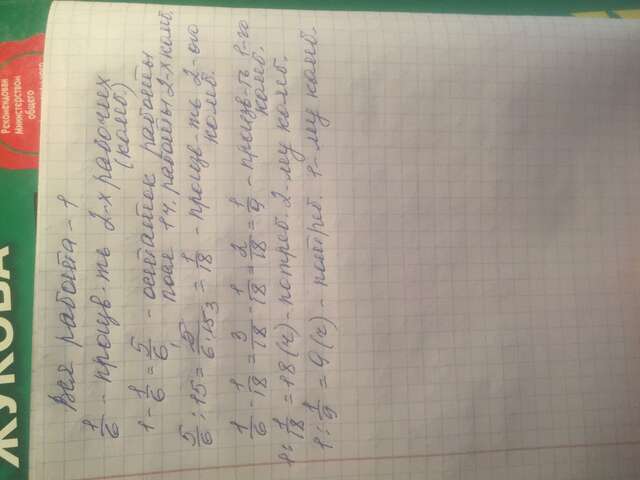 Рекомендован
Министерством
общего
ЖУКОВА
Вся работа - 1
1/6 - произв-ть 2-х рабочих
(комб.)
1 - 1/6 = 5/6 - остаток работы
после 1 ч. работы 2-х комб.
5/6 : 15 = 5/6·15 3 = 1/18 - произв-ть 2-ого
комб.
1/6 - 1/18 = 3/18 - 1/18 = 2/18 = 1/9 - произв-ть 1-го
комб.
1 : 1/18 = 18 (ч) - потреб. 2-му комб.
1 : 1/9 = 9 (ч) - потреб. 1-му комб.